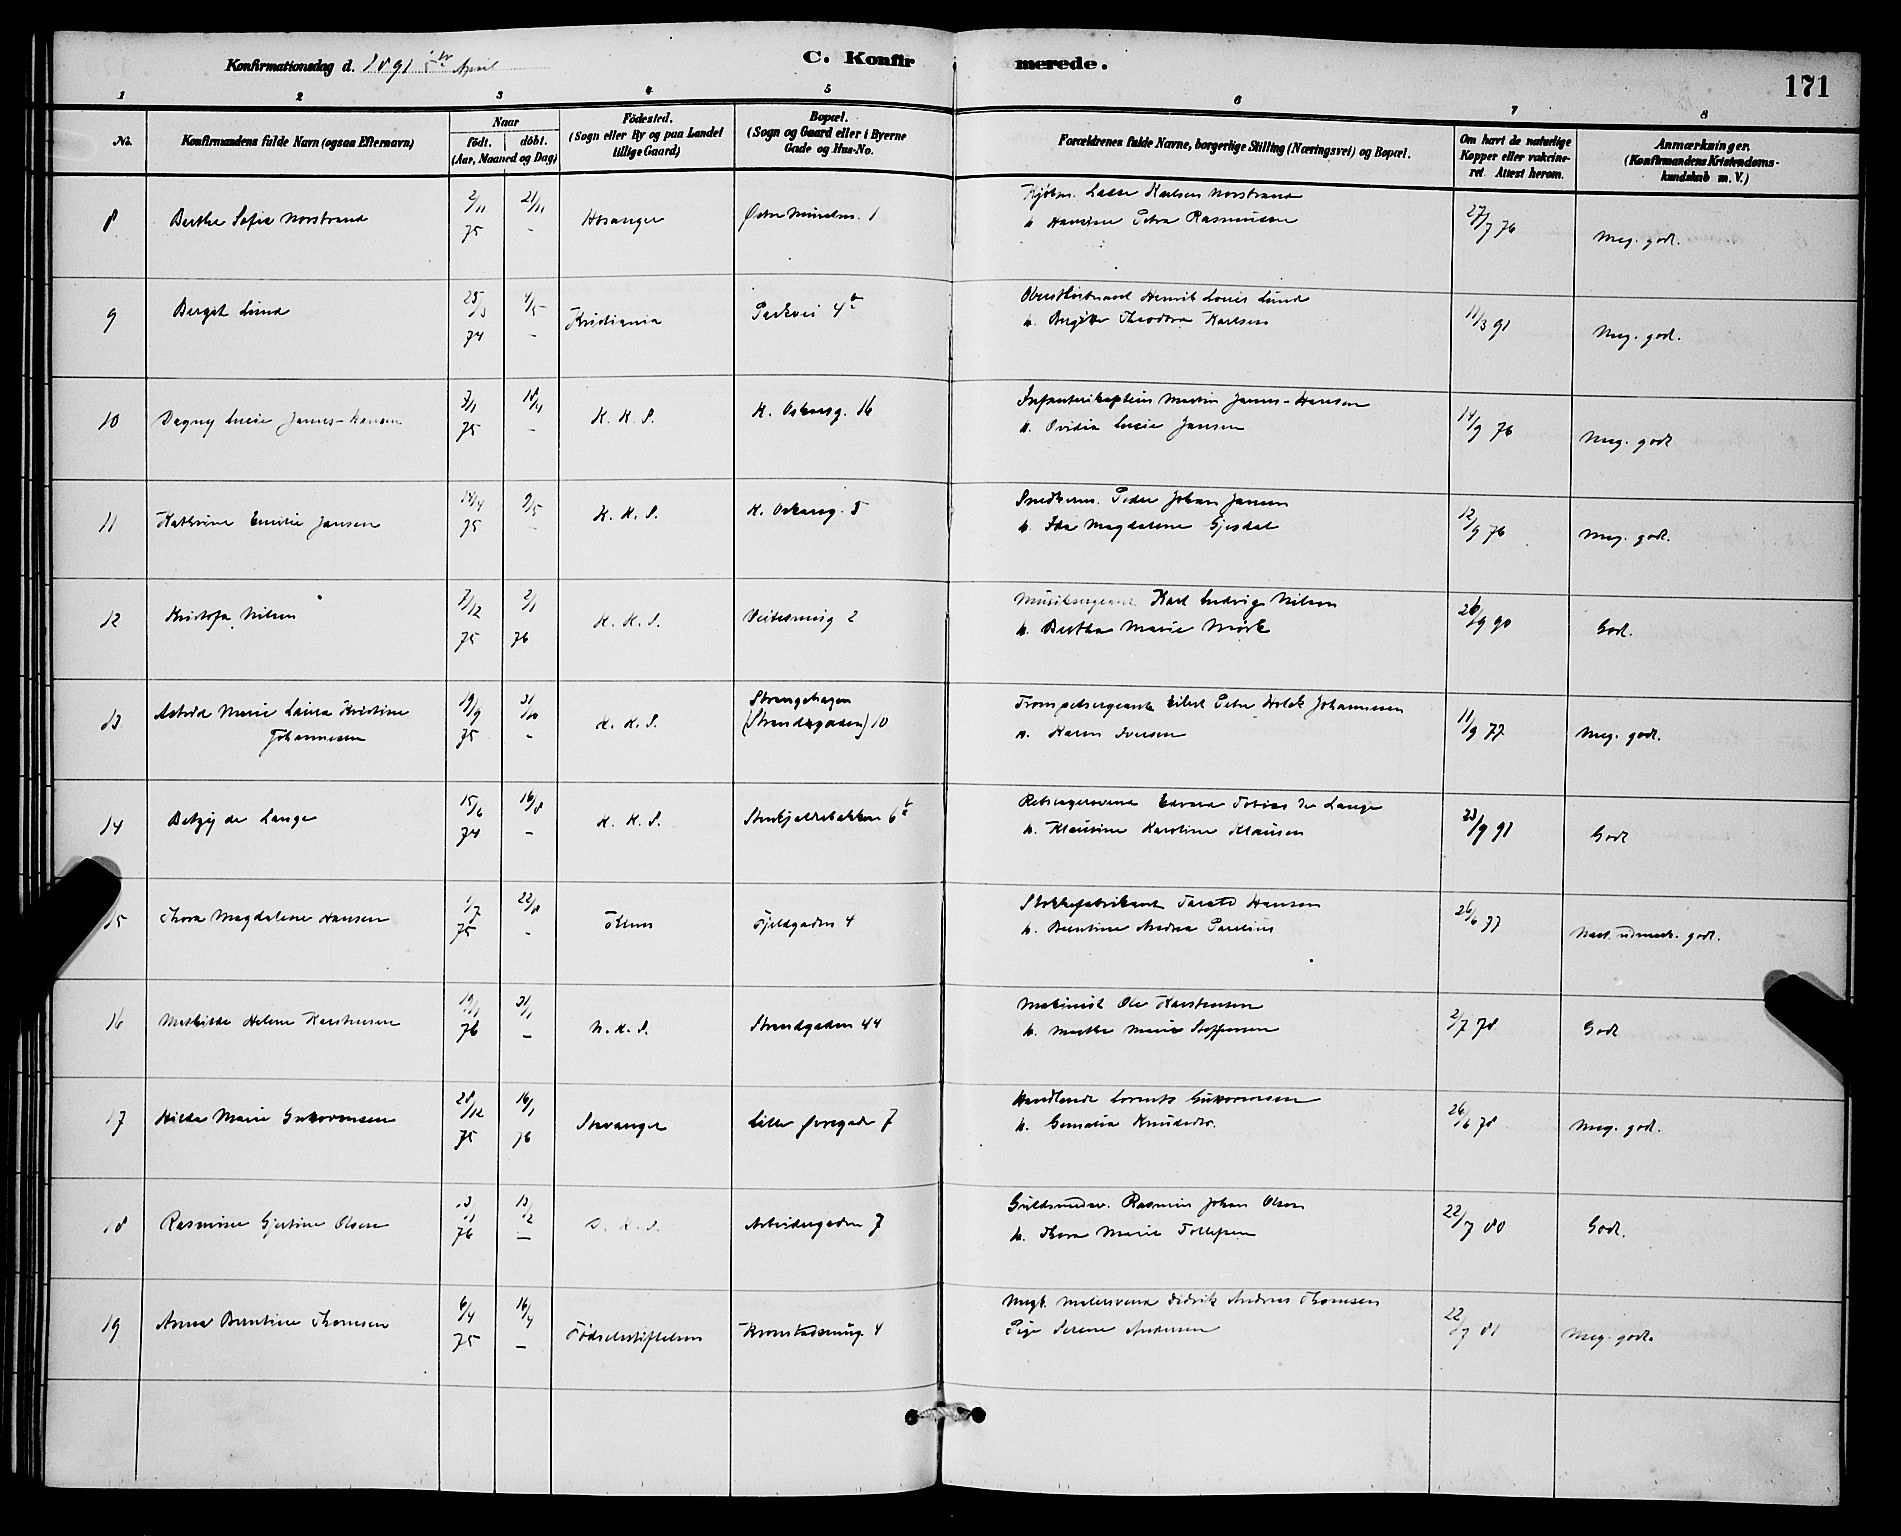 Konfirmationsdag d. 1891 5te April
C. Konfirmerede.
171
1 2 3 4 5 6 7 8
No.
Konfirmandens fulde Navn (ogsaa Efternavn)
Naar
födt. döbt.
(Aar, Maaned og Dag)
Födested.
(Sogn eller By og paa Landet
tillige Gaard)
Bopæl.
(Sogn og Gaard eller i Byerne
Gade og Hus-No.
Forældrenes fulde Navne, borgerlige Stilling (Næringsvei) og Bopæl.
Om havt de naturlige
Kopper eller vakcine-
ret. Attest herom.
Anmærkninger.
(Konfirmandens Kristendoms-
kundskab m. V.)
8 Berthe Sofie Norstrand 2/11 75 21/11 - Hosanger Østre Muralm. 1
Kjøbm. Lasse Karlsen Norstrand
h. Hansine Petra Rasmussen
27/7 76 Meg. godt.
9 Bergit Lund 25/3 74 4/5 - Kristiania Parkvei 4b
Oberstløitnant Henrik Louis Lund
h. Birgitte Theodora Karlsen
11/3 91 Meg. godt.
10 Dagny Lucie James-Hansen 3/1 75 18/4 - K. K. S. K. Oskarsg. 16
Infanterikaptein Martin James-Hansen
h. Ovidia Lucie Jansen
14/9 76 Meg. godt
11 Kathrine Emilie Jansen 14/4 75 9/5 - K. K. S. K. Oskarsg. 5
Snedkerm. Peder Johan Jansen
h. Ida Magdalene Gjesdal
12/9 76 Meg. godt.
12 Kristofa Nilsen 7/12 75 2/1 76 K. K. S. Veitesmug 2
Musiksergeant Karl Ludvig Nilsen
h. Bertha Marie Mørk
26/9 90 Godt.
13 Astrid Marie Laura Kristine
Johannesen 19/9 75 31/10 - K. K. S. Strangehagen
(Strandgaden) 10
Trompetsergeant Eilert Peter Holck Johannesen
h. Karen Iversen
11/9 77 Meg. godt.
14 Betzy de Lange 15/6 74 16/8 - K. K. S. Stenkjelderbakken 6b
Retssagersvend Edvard Tobias de Lange
h. Klausine Karoline Klausen
23/9 91 Godt
15 Thora Magdalene Hansen 1/7 75 22/8 - Fjeldgaden 4
Stokkefabrikant Harald Hansen
h. Berntine Andrea Parelius
26/6 77 Næst. udmærk. godt.
16 Mathilde Helene Karstensen 19/1 76 31/1 - N. K. S. Strandgaden 44
Maskinist Ole Karstensen
h. Marthe Marie Steffensen
2/7 78 Godt
17 Hilda Marie Guttormsen 28/12 75 16/1 76 Stavanger Lille Øvregade 7
Handlende Lorentz Guttormsen
h. Gemalia Knudsdtr.
26/6 78 Meg. godt.
18 Rasmine Gjertine Olsen 3/1 76 13/2 - D. K. S. Arbeidergaden 7
Guldsmedsv. Rasmus Johan Olsen
h. Thora Marie Tollefsen
22/7 80 Godt.
19 Anna Berntine Thomsen 6/4 75 16/4 - Fødselsstiftelsen Kronstadsmug. 4
Ungk. Malersvend Didrik Andreas Thomsen
Pige Serene Andersen
22/7 81 Meg. godt.